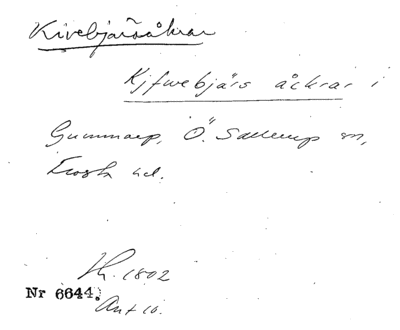 Kivebjärsåkrar
Kjfwebjärs åckrar i
Gummarp, Ö. Sallerup sn,
Frosta hd.
Sk. 1802
Nr 6644.
Akt 10.